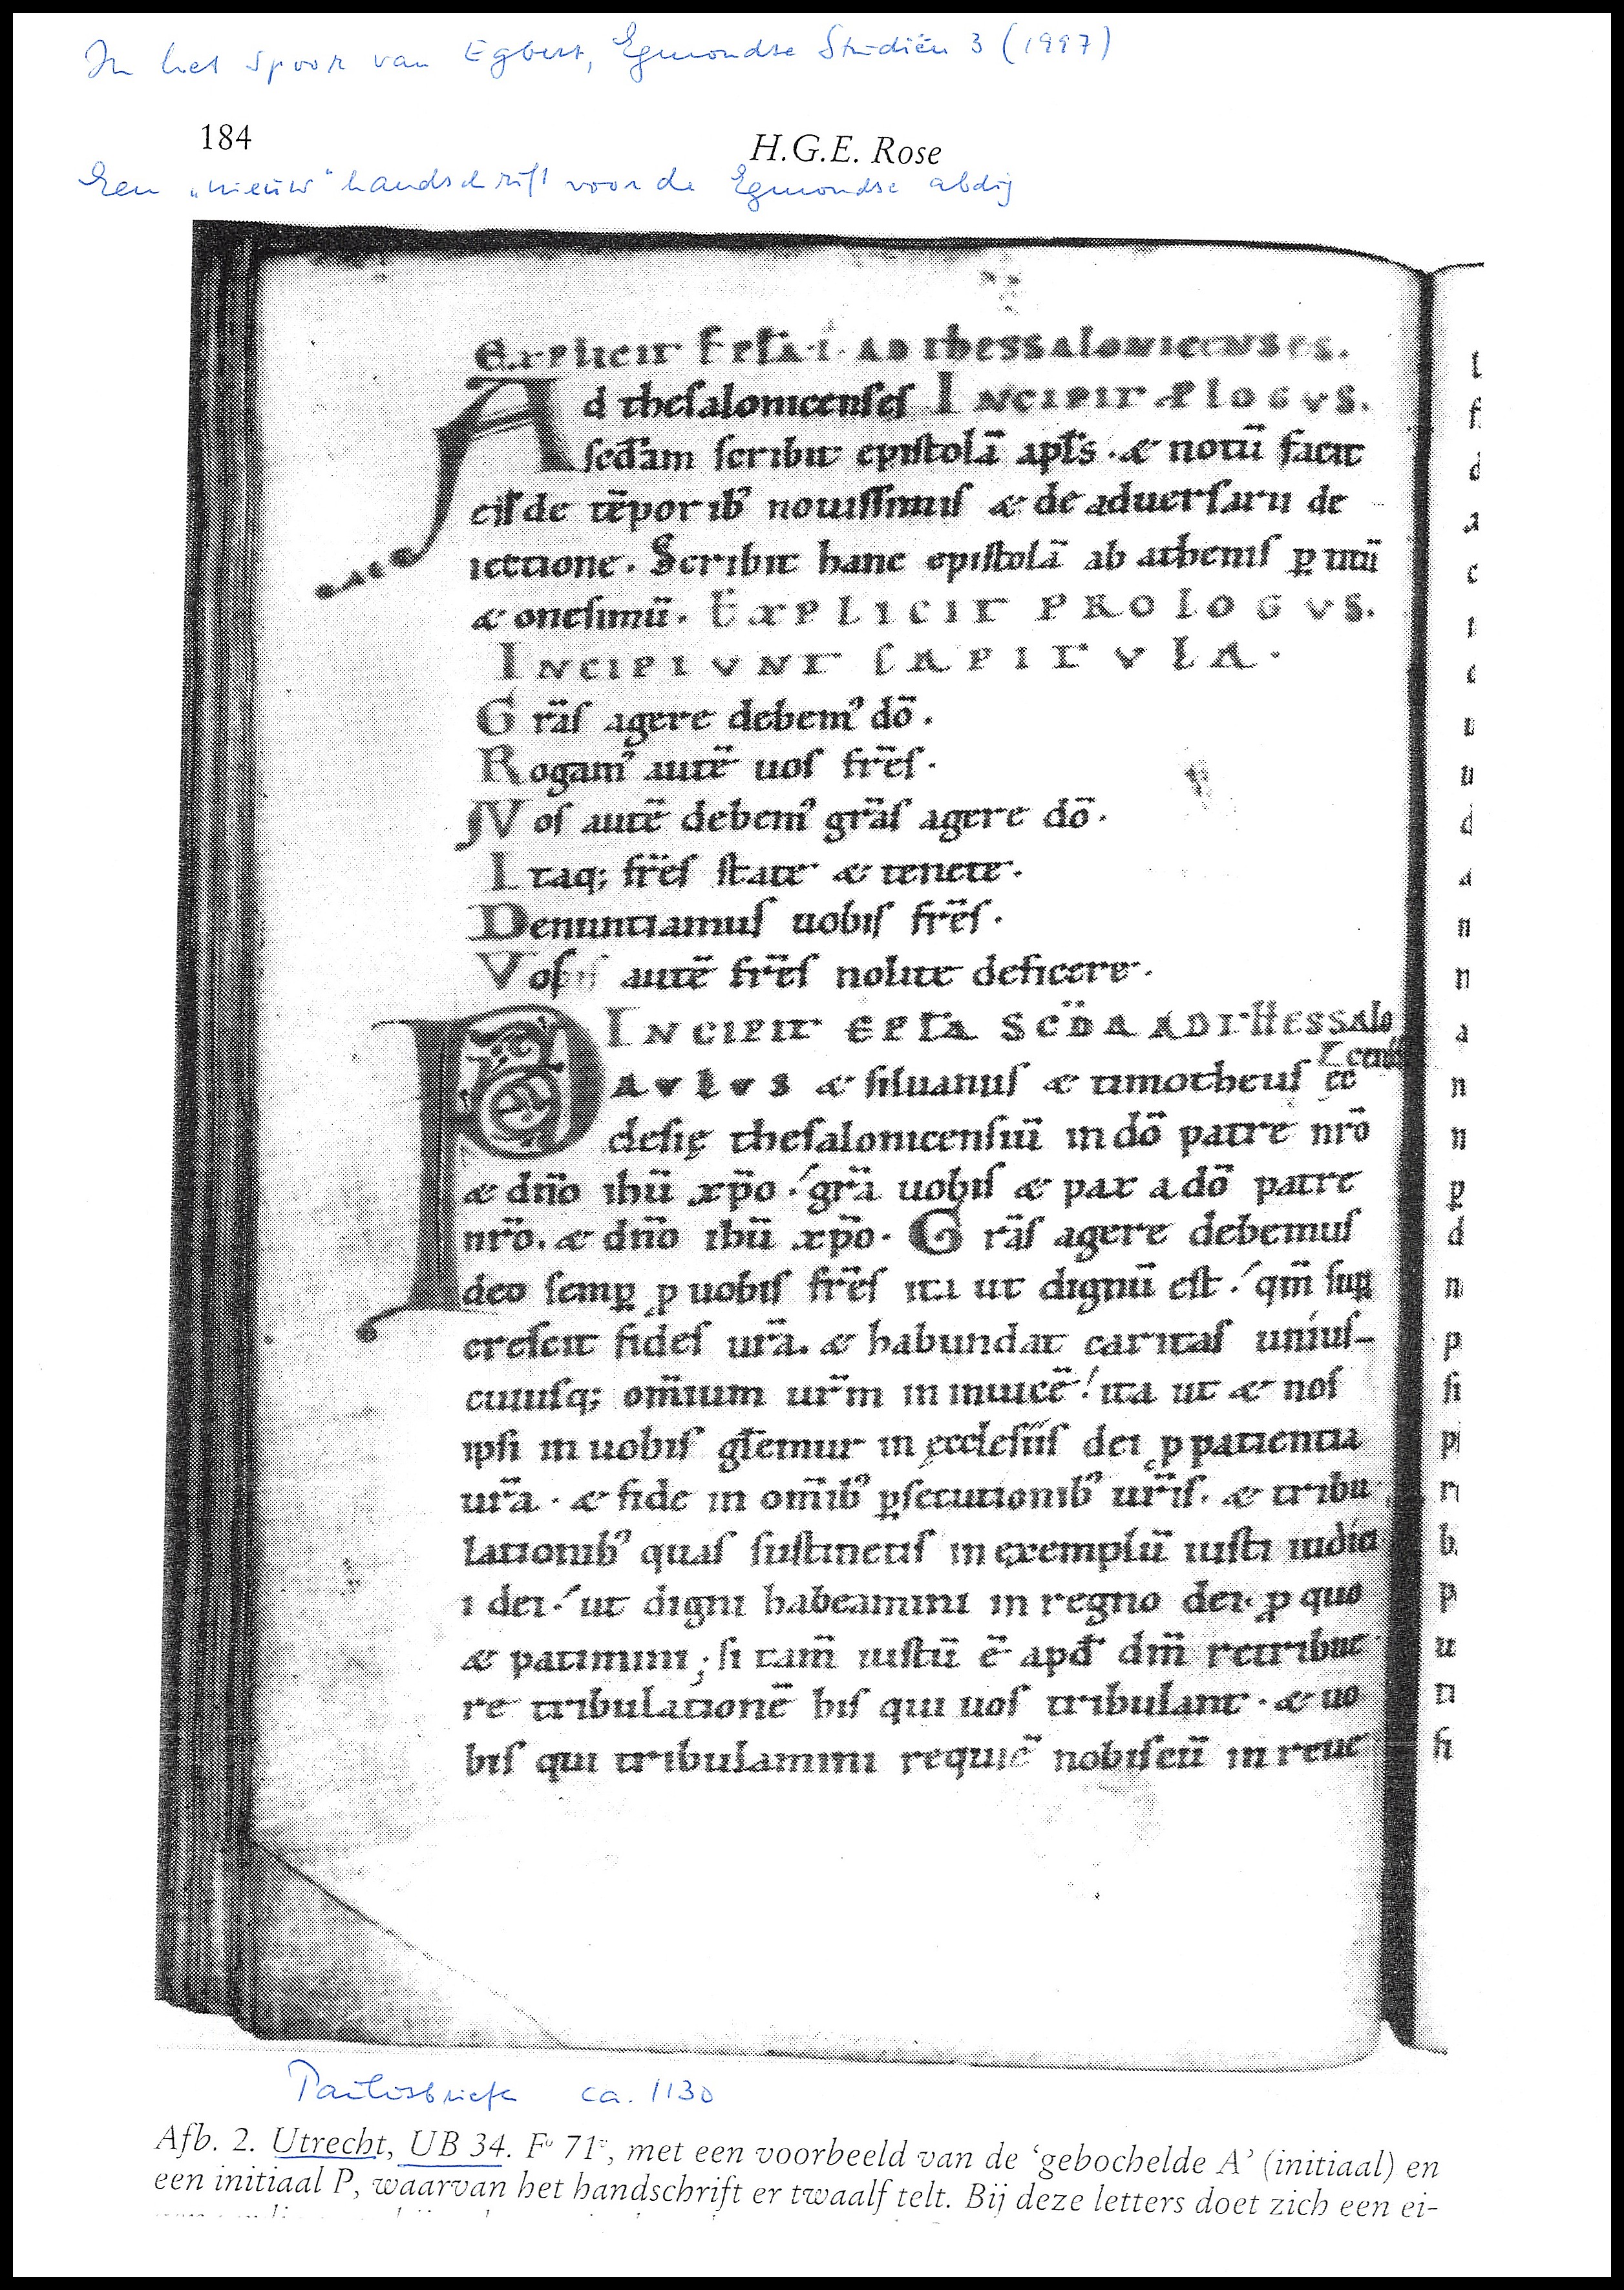 In het spoor van Egbert, Egmondse Studiën 3 (1997)
184 H.G.E. Rose
Een „nieuw" handschrift voor de Egmondse abdij
Explicit Ep̄ła·i· ad thessalonicenses.
Ad thesalonicenses Incipit p̄logvs.
scd̄am scribit epistolā apl̄s. & notū facit
eis de tēporib; nouissimis & de aduersarii de
iectione. Scribit hanc epistolā ab athenis ꝑ titū
& onesimū. Explicit prologvs.
Incipivnt capitvla.
Gr̄as agere debemꝰ dō.
Rogamꝰ autē uos fr̄es.
Nos autē debemꝰ gr̄as agere dō.
Itaq; fr̄es state & tenete.
Denuntiamus uobis fr̄es.
Vos autē fr̄es nolite deficere.
Incipit ep̄ła scd̄a ad thessalo
Pavlvs & siluanus & timotheus ec
clesię thesalonicensiū in dō patre nr̄o
& dn̄o ihū xp̄o. gr̄a uobis & pax a dō patre
nr̄o. & dn̄o ihū xp̄o. Gr̄as agere debemus
deo semꝑ ꝓ uobis fr̄es ita ut dignū est. qm̄ suꝑ
crescit fides ur̄a. & habundat caritas unius-
cuiusq; om̄ium ur̄m in inuicē. ita ut & nos
ipsi in uobis gl̄emur in ęcclesiis dei ꝓ patientia
ur̄a. & fide in om̄ibꝰ ꝑsecutionibꝰ ur̄is. & tribu
lationibꝰ quas sustinetis in exemplū iusti iudici
i dei. ut digni habeamini in regno dei. ꝓ quo
& patimini; si tam̄ iustū ē apd̄ dm̄ retribue
re tribulationē his qui uos tribulant. & uo
bis qui tribulamini requiē nobiscū in reue
Paulusbriefe ca. 1130
Afb. 2. Utrecht, UB 34. Fᵒ 71ᵛ, met een voorbeeld van de ‘gebochelde A’ (initiaal) en
een initiaal P, waarvan het handschrift er twaalf telt. Bij deze letters doet zich een ei-